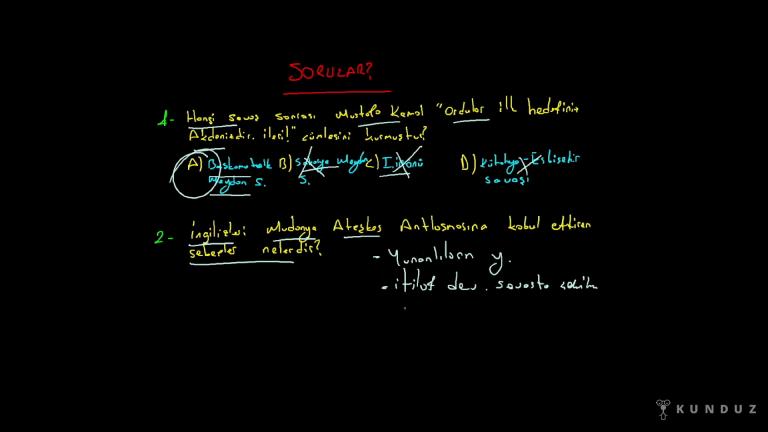 SORULAR?
1- Hangi savaş sonrası Mustafa Kemal "Ordular ilk hedefiniz
Akdenizdir. ileri!" cümlesini kurmuştur?
A) Başkomutanlık Meydan S. B) Sakarya Meydan S. C) I. inönü D) Kütahya-Eskişehir savaşı
2- İngilizleri Mudanya Ateşkes Antlaşmasına kabul ettiren
sebepler nelerdir?
- Yunanlıların y.
- itilaf dev. savaşta
KUNDUZ